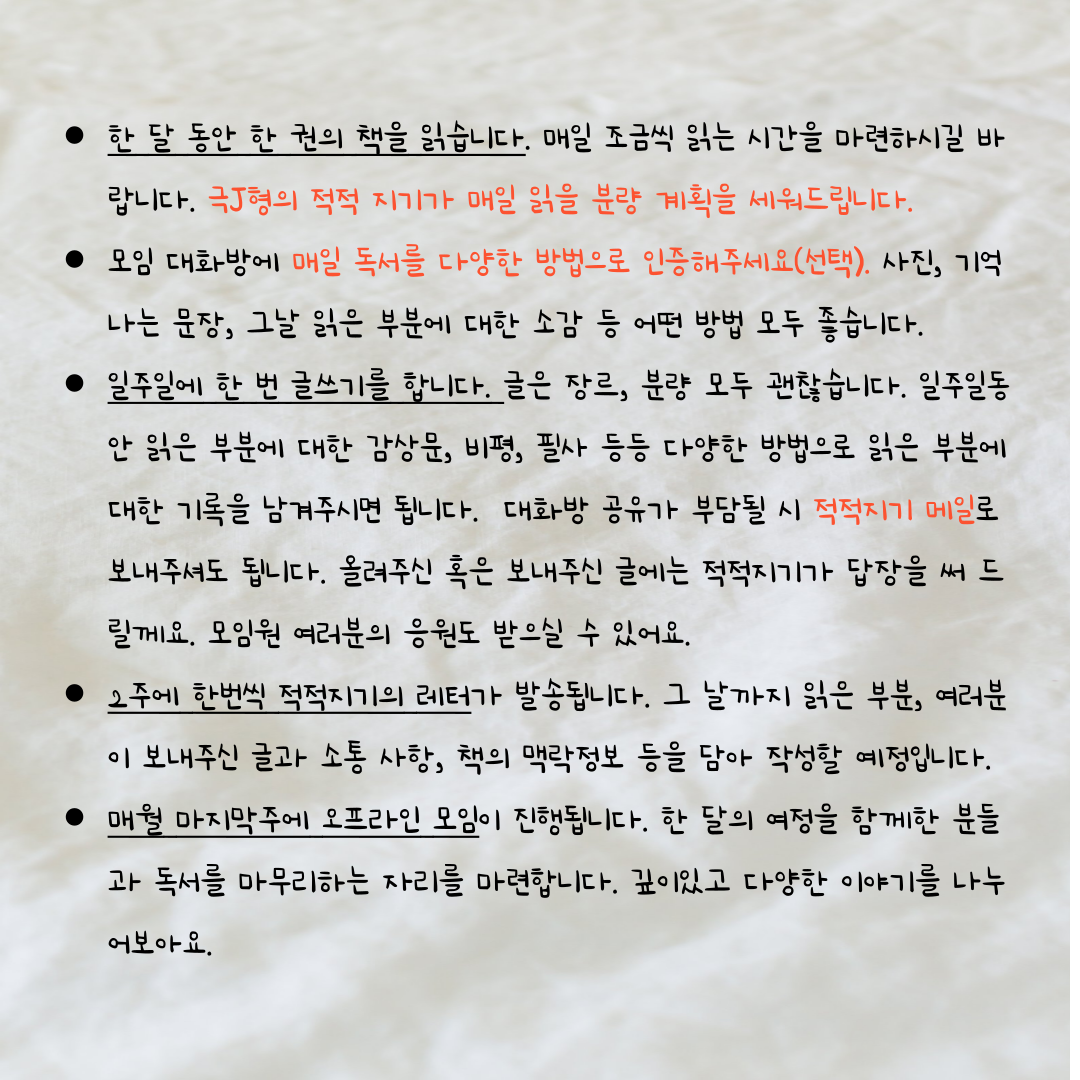 ● 한 달 동안 한 권의 책을 읽습니다. 매일 조금씩 읽는 시간을 마련하시길 바
랍니다. 극J형의 적적 지기가 매일 읽을 분량 계획을 세워드립니다.
● 모임 대화방에 매일 독서를 다양한 방법으로 인증해주세요(선택). 사진, 기억
나는 문장, 그날 읽은 부분에 대한 소감 등 어떤 방법 모두 좋습니다.
● 일주일에 한 번 글쓰기를 합니다. 글은 장르, 분량 모두 괜찮습니다. 일주일동
안 읽은 부분에 대한 감상문, 비평, 필사 등등 다양한 방법으로 읽은 부분에
대한 기록을 남겨주시면 됩니다. 대화방 공유가 부담될 시 적적지기 메일로
보내주셔도 됩니다. 올려주신 혹은 보내주신 글에는 적적지기가 답장을 써 드
릴께요. 모임원 여러분의 응원도 받으실 수 있어요.
● 2주에 한번씩 적적지기의 레터가 발송됩니다. 그 날까지 읽은 부분, 여러분
이 보내주신 글과 소통 사항, 책의 맥락정보 등을 담아 작성할 예정입니다.
● 매월 마지막주에 오프라인 모임이 진행됩니다. 한 달의 여정을 함께한 분들
과 독서를 마무리하는 자리를 마련합니다. 깊이있고 다양한 이야기를 나누
어보아요.